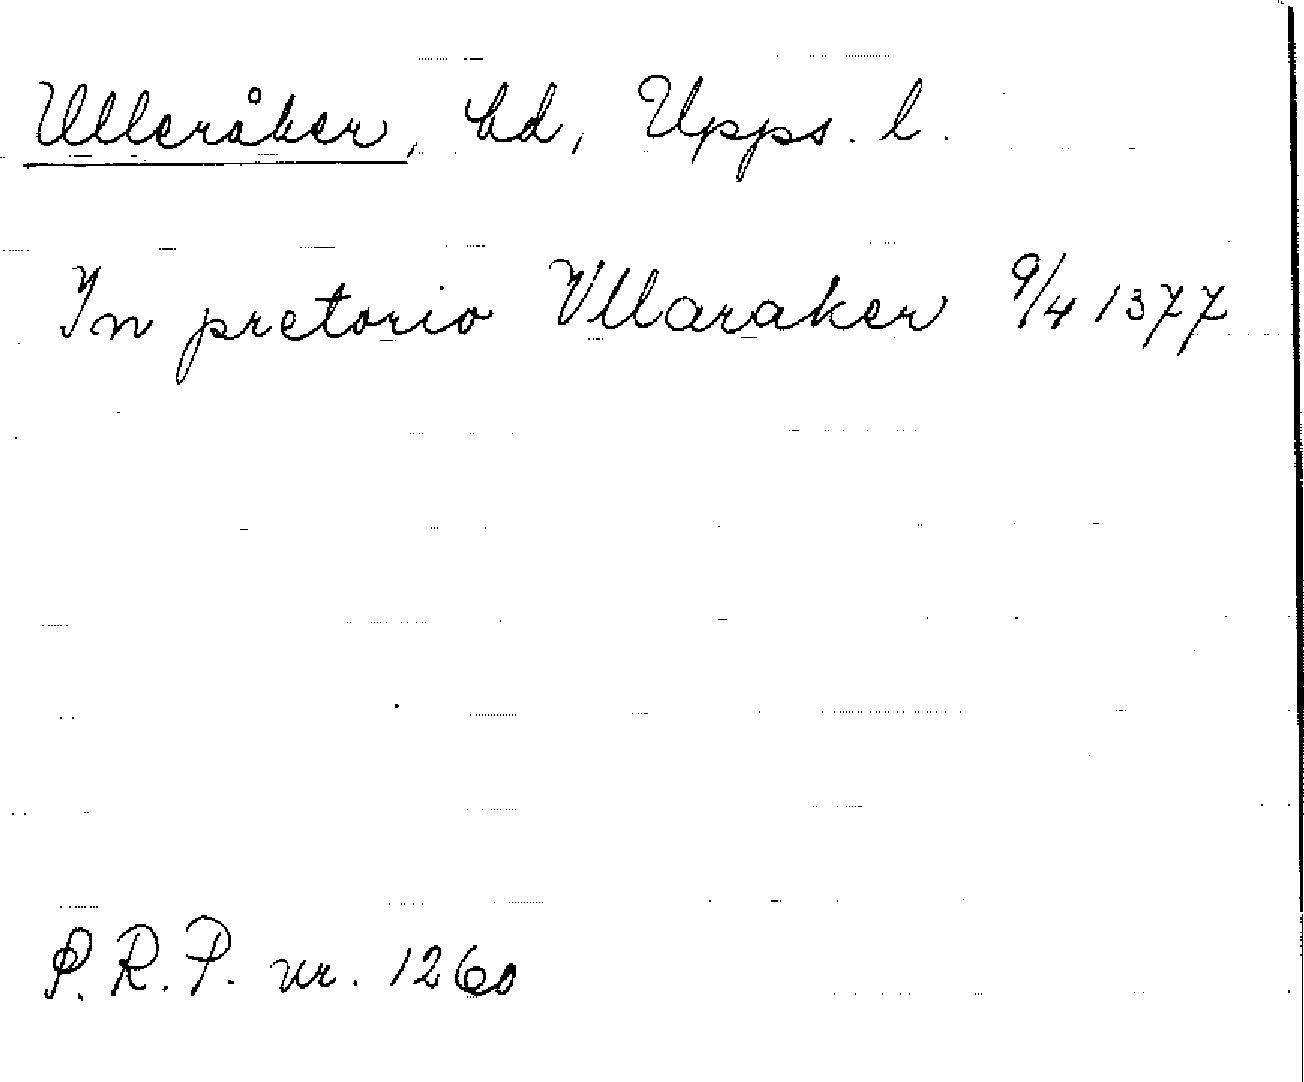 Ulleråker, hd, Upps. l.
In pretorio Vllaraker 9/4 1377
P.R.P. nr. 1260